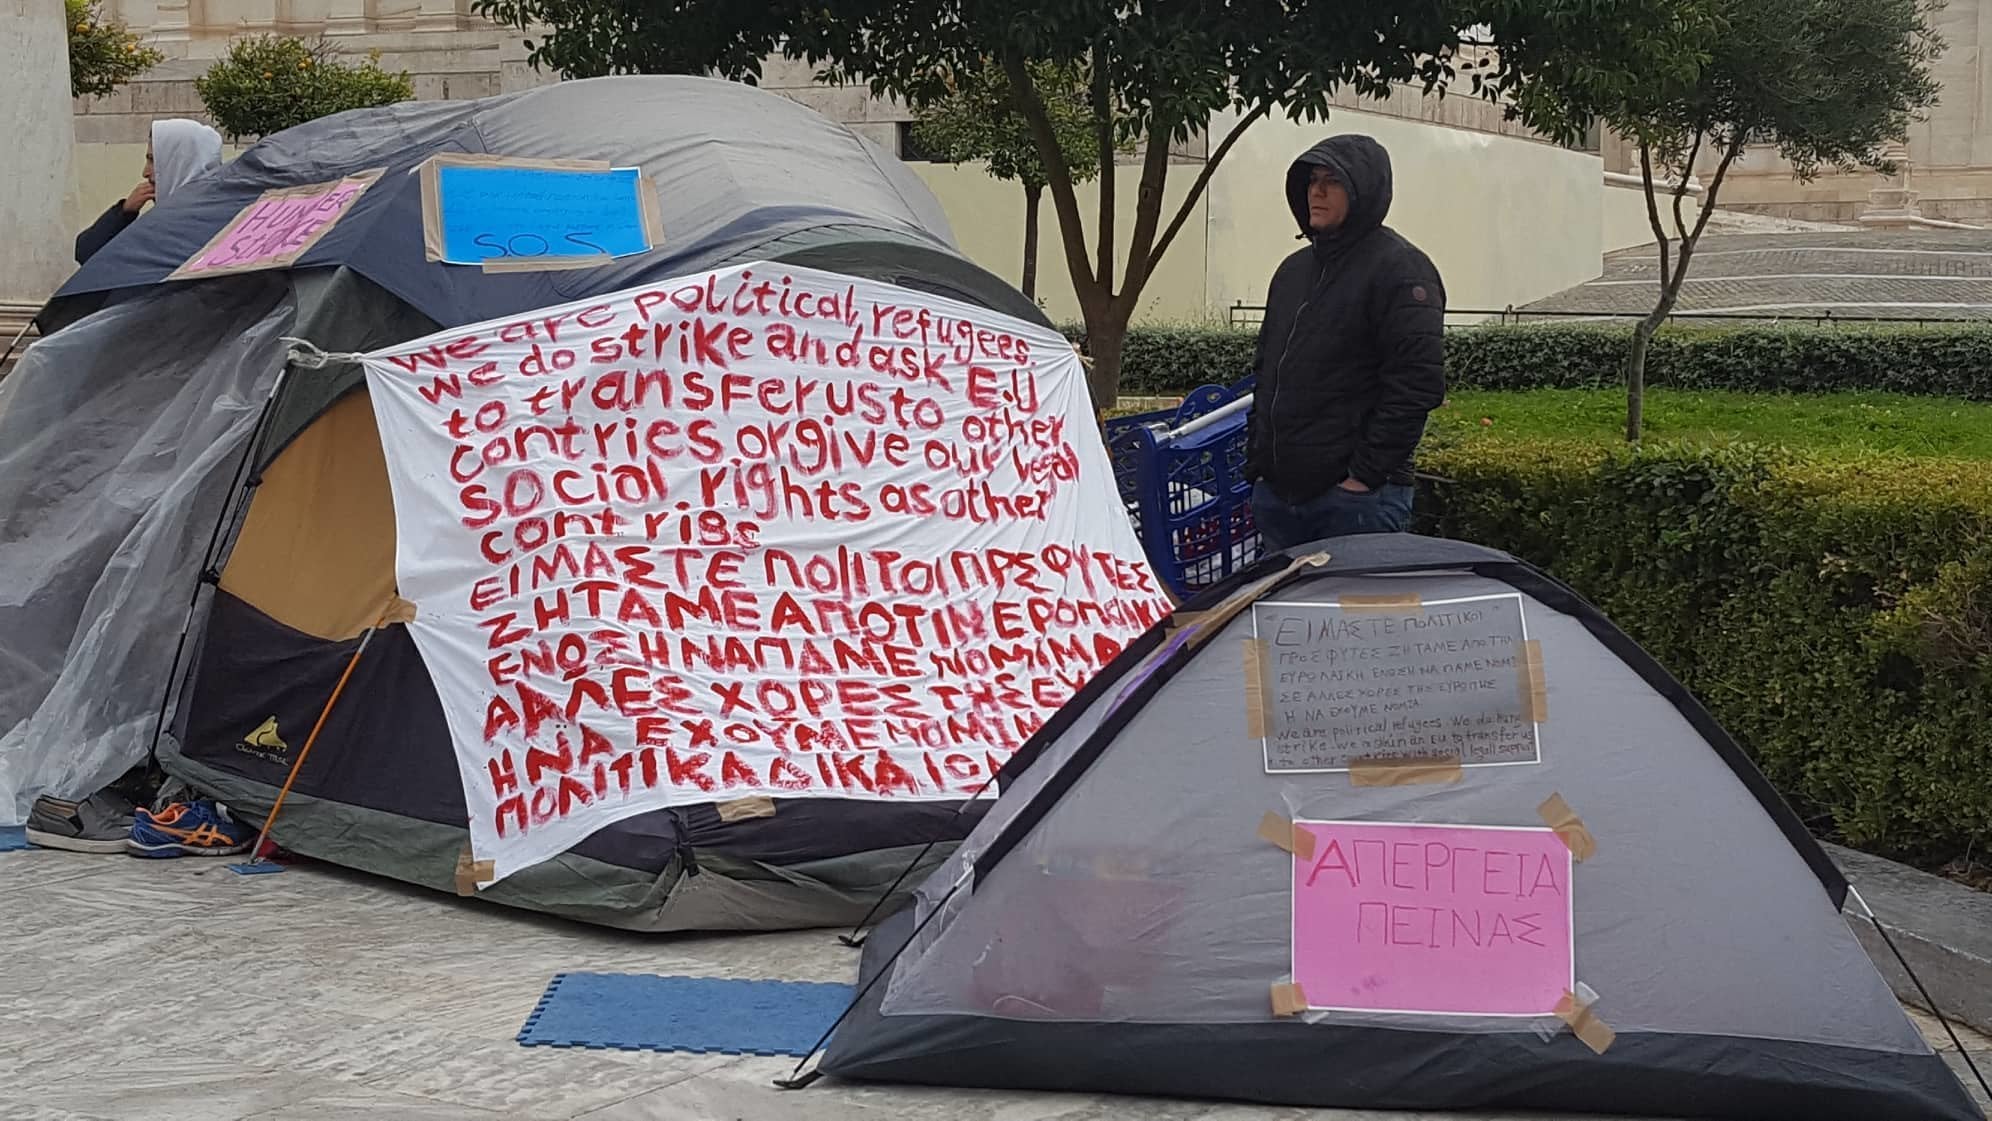 HUNGER
S.O.S
we are political, refugees.
we do strike and ask E.U
to transfer us to other
contries or give our legal
social rights as other
contries
ΕΙΜΑΣΤΕ ΠΟΛΙΤΟΙ ΠΡΣΦΥΤΕΣ
ΖΗΤΑΜΕ ΑΠΟ ΤΙΝ ΕΡΟΠΑΙΚΗ
ΕΝΩΣΗ ΝΑ ΠΑΜΕ ΝΟΜΙΜΑ
ΑΛΛΕΣ ΧΩΡΕΣ ΤΗΣ ΕΥ
Η ΝΑ ΕΧΟΥΜΕ ΝΟΜΙΜ
ΠΟΛΙΤΙΚΑ ΔΙΚΑΙΩ
"ΕΙΜΑΣΤΕ ΠΟΛΙΤΙΚΟΙ"
ΠΡΟΣΦΥΤΕΣ ΖΗΤΑΜΕ ΑΠΟ ΤΗΝ
ΕΥΡΟΠΑΙΚΗ ΕΝΟΣΗ ΝΑ ΠΑΜΕ ΝΟΜΙ
ΣΕ ΑΛΛΕΣ ΧΟΡΕΣ ΤΗΣ ΕΥΡΟΠΗΣ
Η ΝΑ ΕΧΟΥΜΕ ΝΟΜΙΑ
We are political refugees. We do hung
strike. we askin an EU to transfer us
to other contries with social legall support
ΑΠΕΡΓΕΙΑ
ΠΕΙΝΑΣ